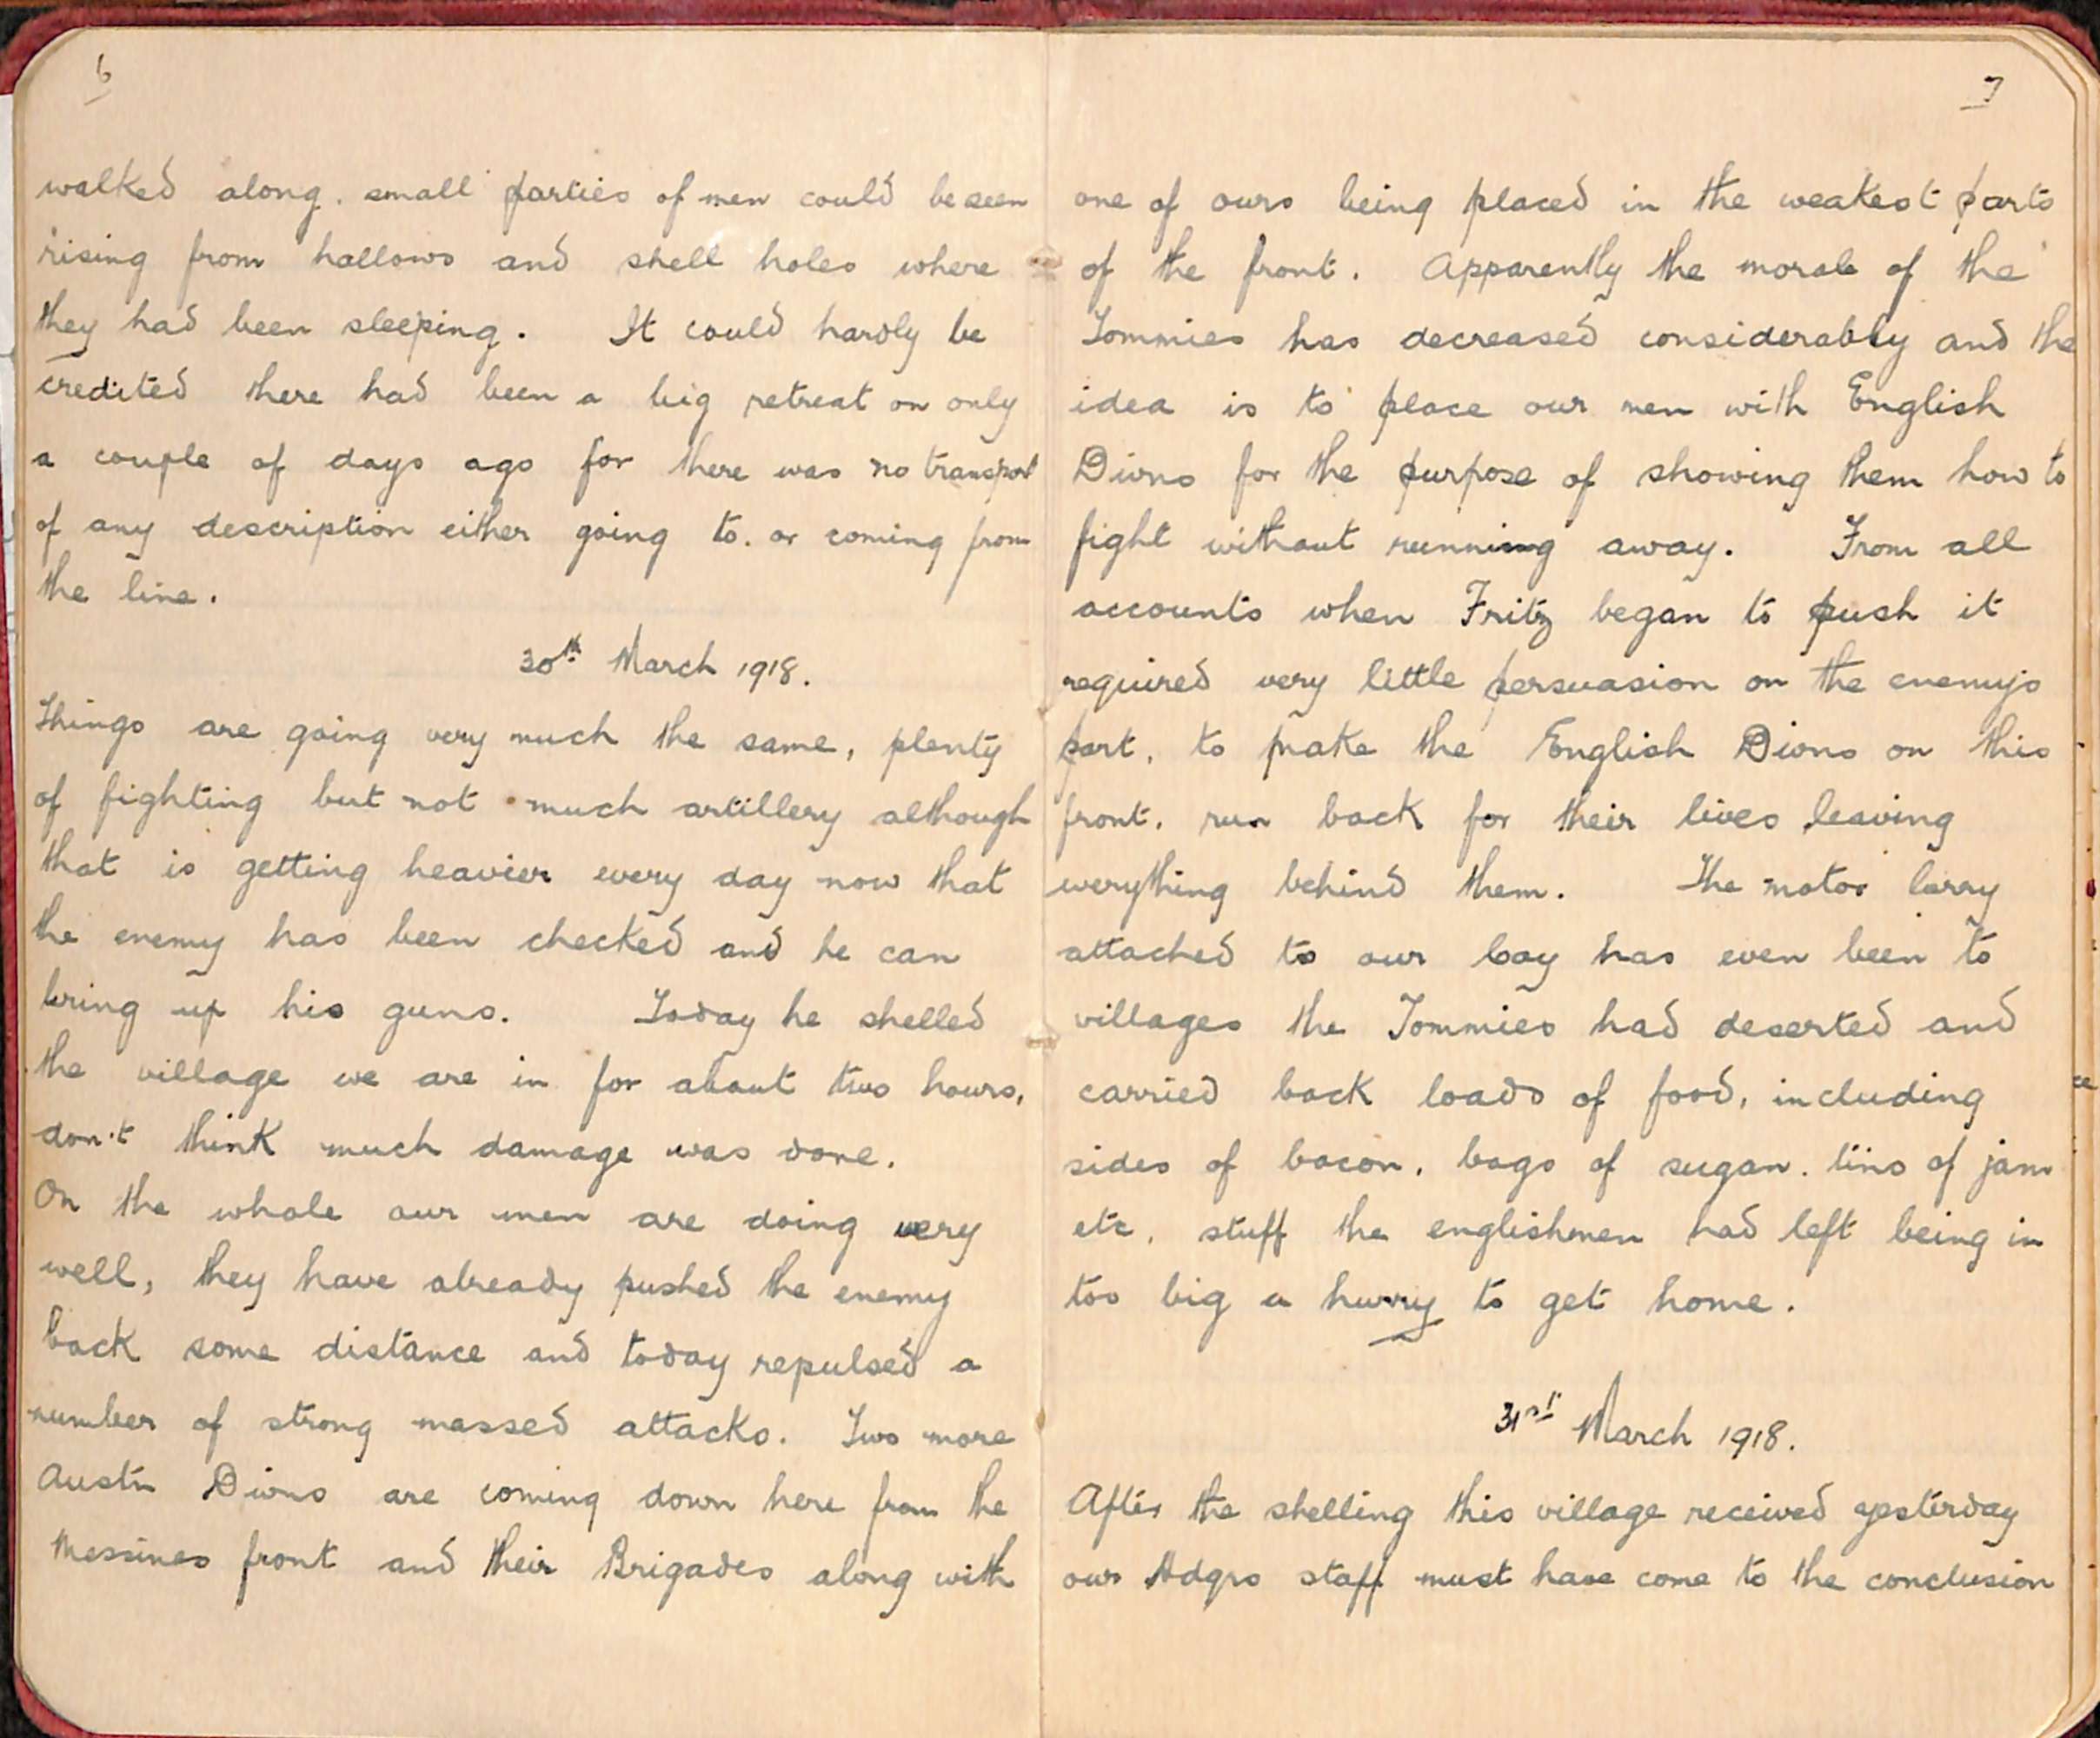 6
walked along. small parties of men could be seen
rising from hallows and shell holes where
they had been sleeping. It could hardly be
credited there had been a big retreat on only
a couple of days ago for there was no transport
of any description either going to. or coming from
the line.
30th March 1918.
Things are going very much the same, plenty
of fighting but not much artillery although
that is getting heavier every day now that
the enemy has been checked and he can
bring up his guns. Today he shelled
the village we are in for about two hours,
don't think much damage was done.
On the whole our men are doing very
well, they have already pushed the enemy
back some distance and today repulsed a
number of strong massed attacks. Two more
Austn Divns are coming down here from the
Messines front and their Brigades along with
7
one of ours being placed in the weakest parts
of the front. Apparently the morale of the
Tommies has decreased considerably and the
idea is to place our men with English
Divns for the purpose of showing them how to
fight without running away. From all
accounts when Fritz began to push it
required very little persuasion on the enemys
part, to make the English Divns on this
front, run back for their lives leaving
everything behind them. The motor lorry
attached to our Coy has even been to
villages the Tommies had deserted and
carried back loads of food, including
sides of bacon, bags of sugar. tins of jam
etc, stuff the englishmen had left being in
too big a hurry to get home.
31st March 1918.
After the shelling this village received yesterday
our Hdqrs staff must have come to the conclusion